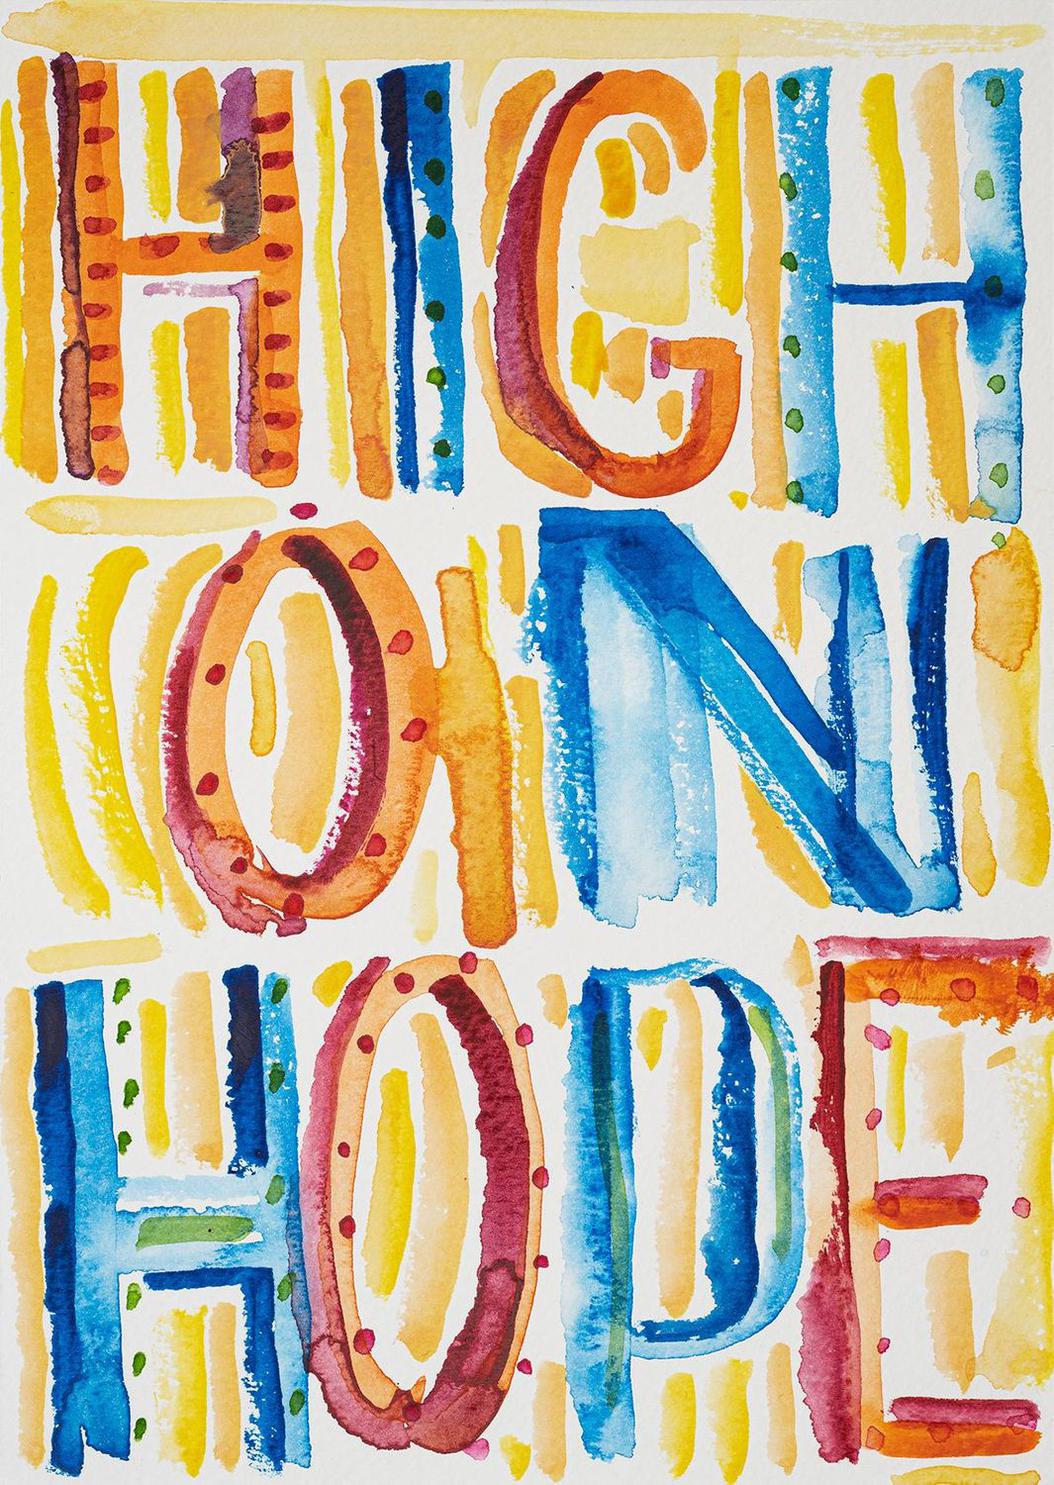 HIGH
ON
HOPE